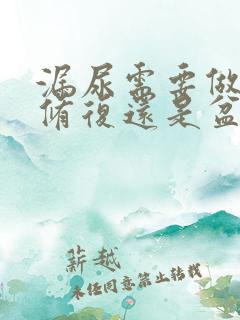 漏尿需要做
脩復還是盆
薪越
未徑同意禁止转载